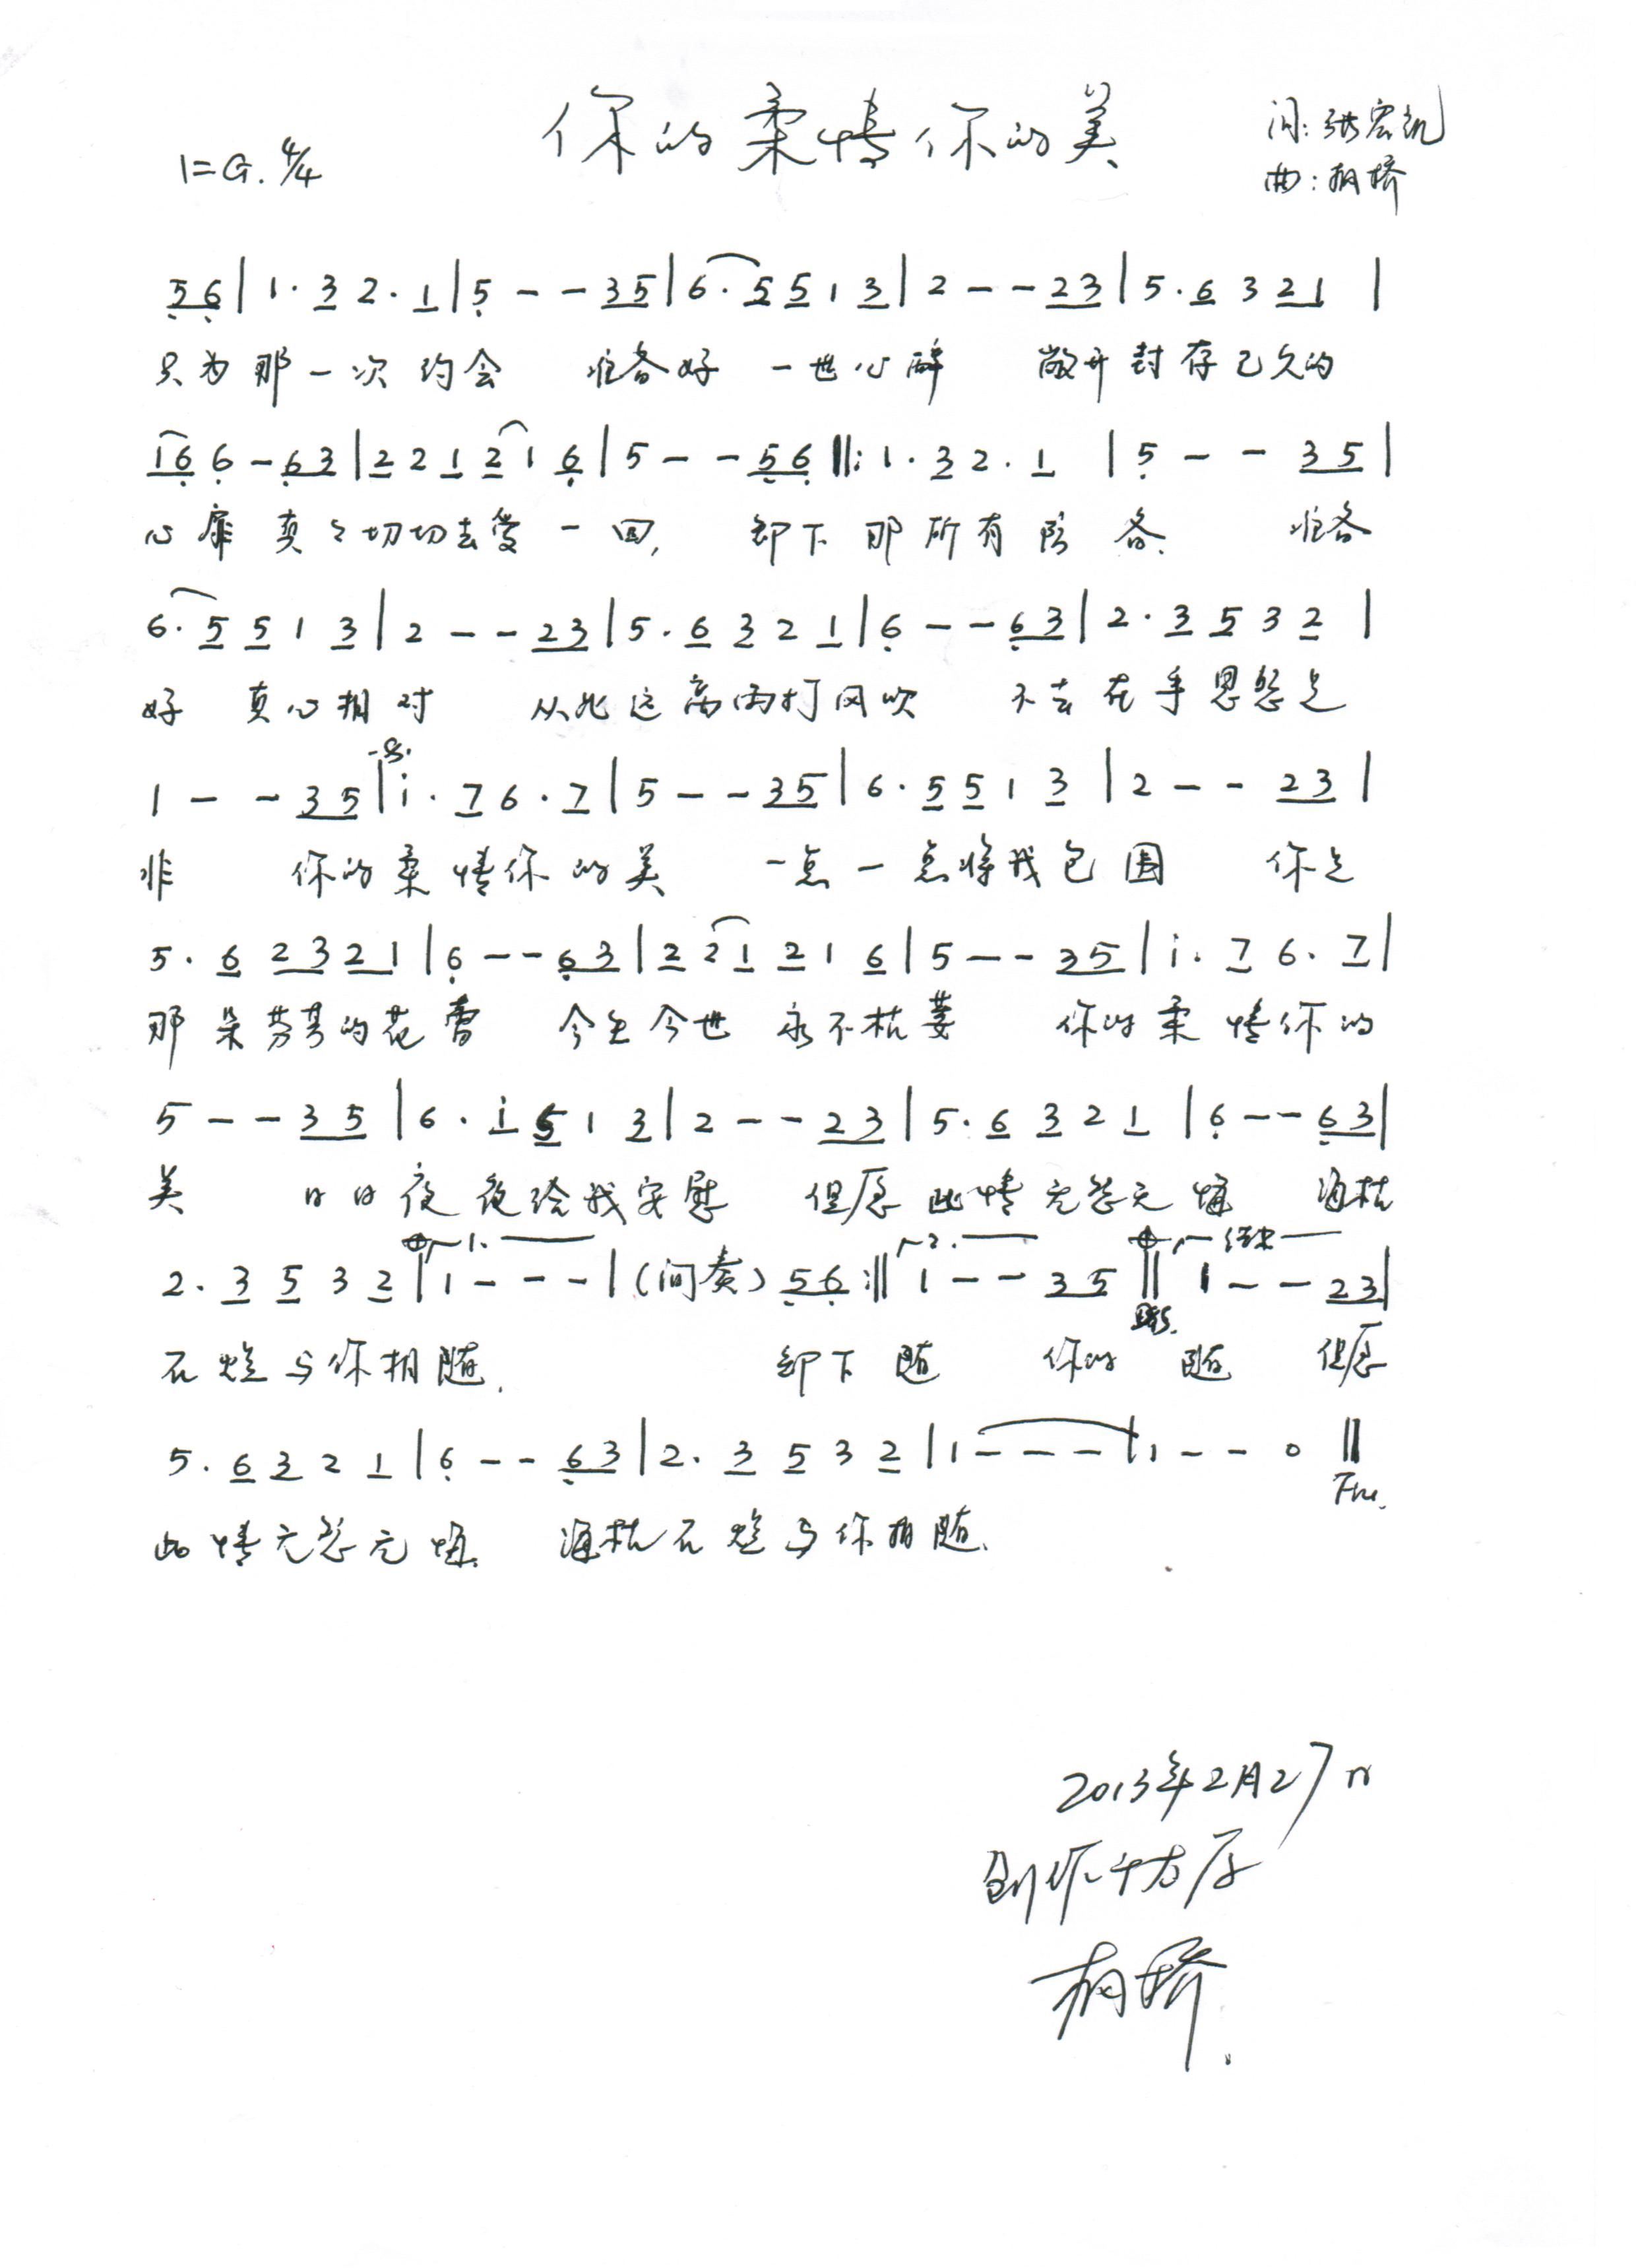 你的柔情你的美
1=G. 4/4
词:张宏凯
曲:柏桥
5 6 | 1 · 3 2 · 1 | 5 - - 3 5 | 6 · 5 5 1 3 | 2 - - 2 3 | 5 · 6 3 2 1 |
只为那一次约会 准备好一世心醉 敞开封存已久的
1 6 6 - 6 3 | 2 2 1 2 1 6 | 5 - - 5 6 ‖: 1 · 3 2 · 1 | 5 - - 3 5 |
心扉真々切切去爱一回, 卸下那所有防备. 准备
6 · 5 5 1 3 | 2 - - 2 3 | 5 · 6 3 2 1 | 6 - - 6 3 | 2 · 3 5 3 2 |
好真心相对 从此远离雨打风吹 不去在乎恩怨是
1 - - 3 5 | i · 7 6 · 7 | 5 - - 3 5 | 6 · 5 5 1 3 | 2 - - 2 3 |
非 你的柔情你的美 一点一点将我包围 你是
5 · 6 2 3 2 1 | 6 - - 6 3 | 2 2 1 2 1 6 | 5 - - 3 5 | i · 7 6 · 7 |
那朵芬芳的花蕾 今生今世永不枯萎 你的柔情你的
5 - - 3 5 | 6 · i 5 1 3 | 2 - - 2 3 | 5 · 6 3 2 1 | 6 - - 6 3 |
美 日日夜夜给我安慰 但愿此情无怨无悔 海枯
1. 2. 结束
2 · 3 5 3 2 | 1 - - - | (间奏) 5 6 :‖ 1 - - 3 5 ‖ 1 - - 2 3 |
石烂与你相随. 卸下随 你的 随 但愿
5 · 6 3 2 1 | 6 - - 6 3 | 2 · 3 5 3 2 | 1 - - - | 1 - - 0 ‖
Fine.
此情无怨无悔. 海枯石烂与你相随.
2013年2月27日
创作于方庄
柏桥.